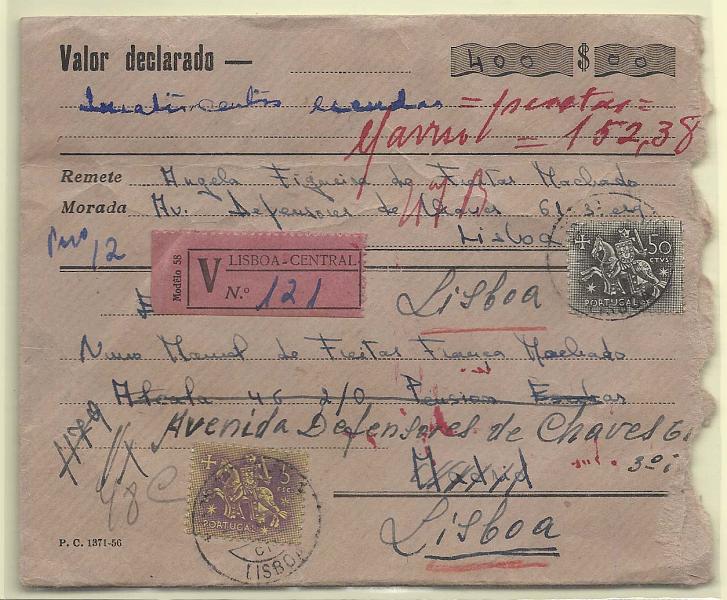 Valor declarado — 400 $ 00
escudos = pesetas =
= 152,38
Remete Angela Figueira de Freitas Machado
Morada Av. Defensores de Chaves 61-3º esq.
Lisboa
12
50
CTVS.
PORTUGAL
Modêlo 58
V
LISBOA-CENTRAL
N.º 121
Lisboa
Nuno Manuel de Freitas França Machado
Alcala 46 2/0 Pension
Avenida Defensores de Chaves 61
3º
1179
48 C
Madrid
Lisboa
5
ESC.
PORTUGAL
LISBOA
P. C. 1371-56